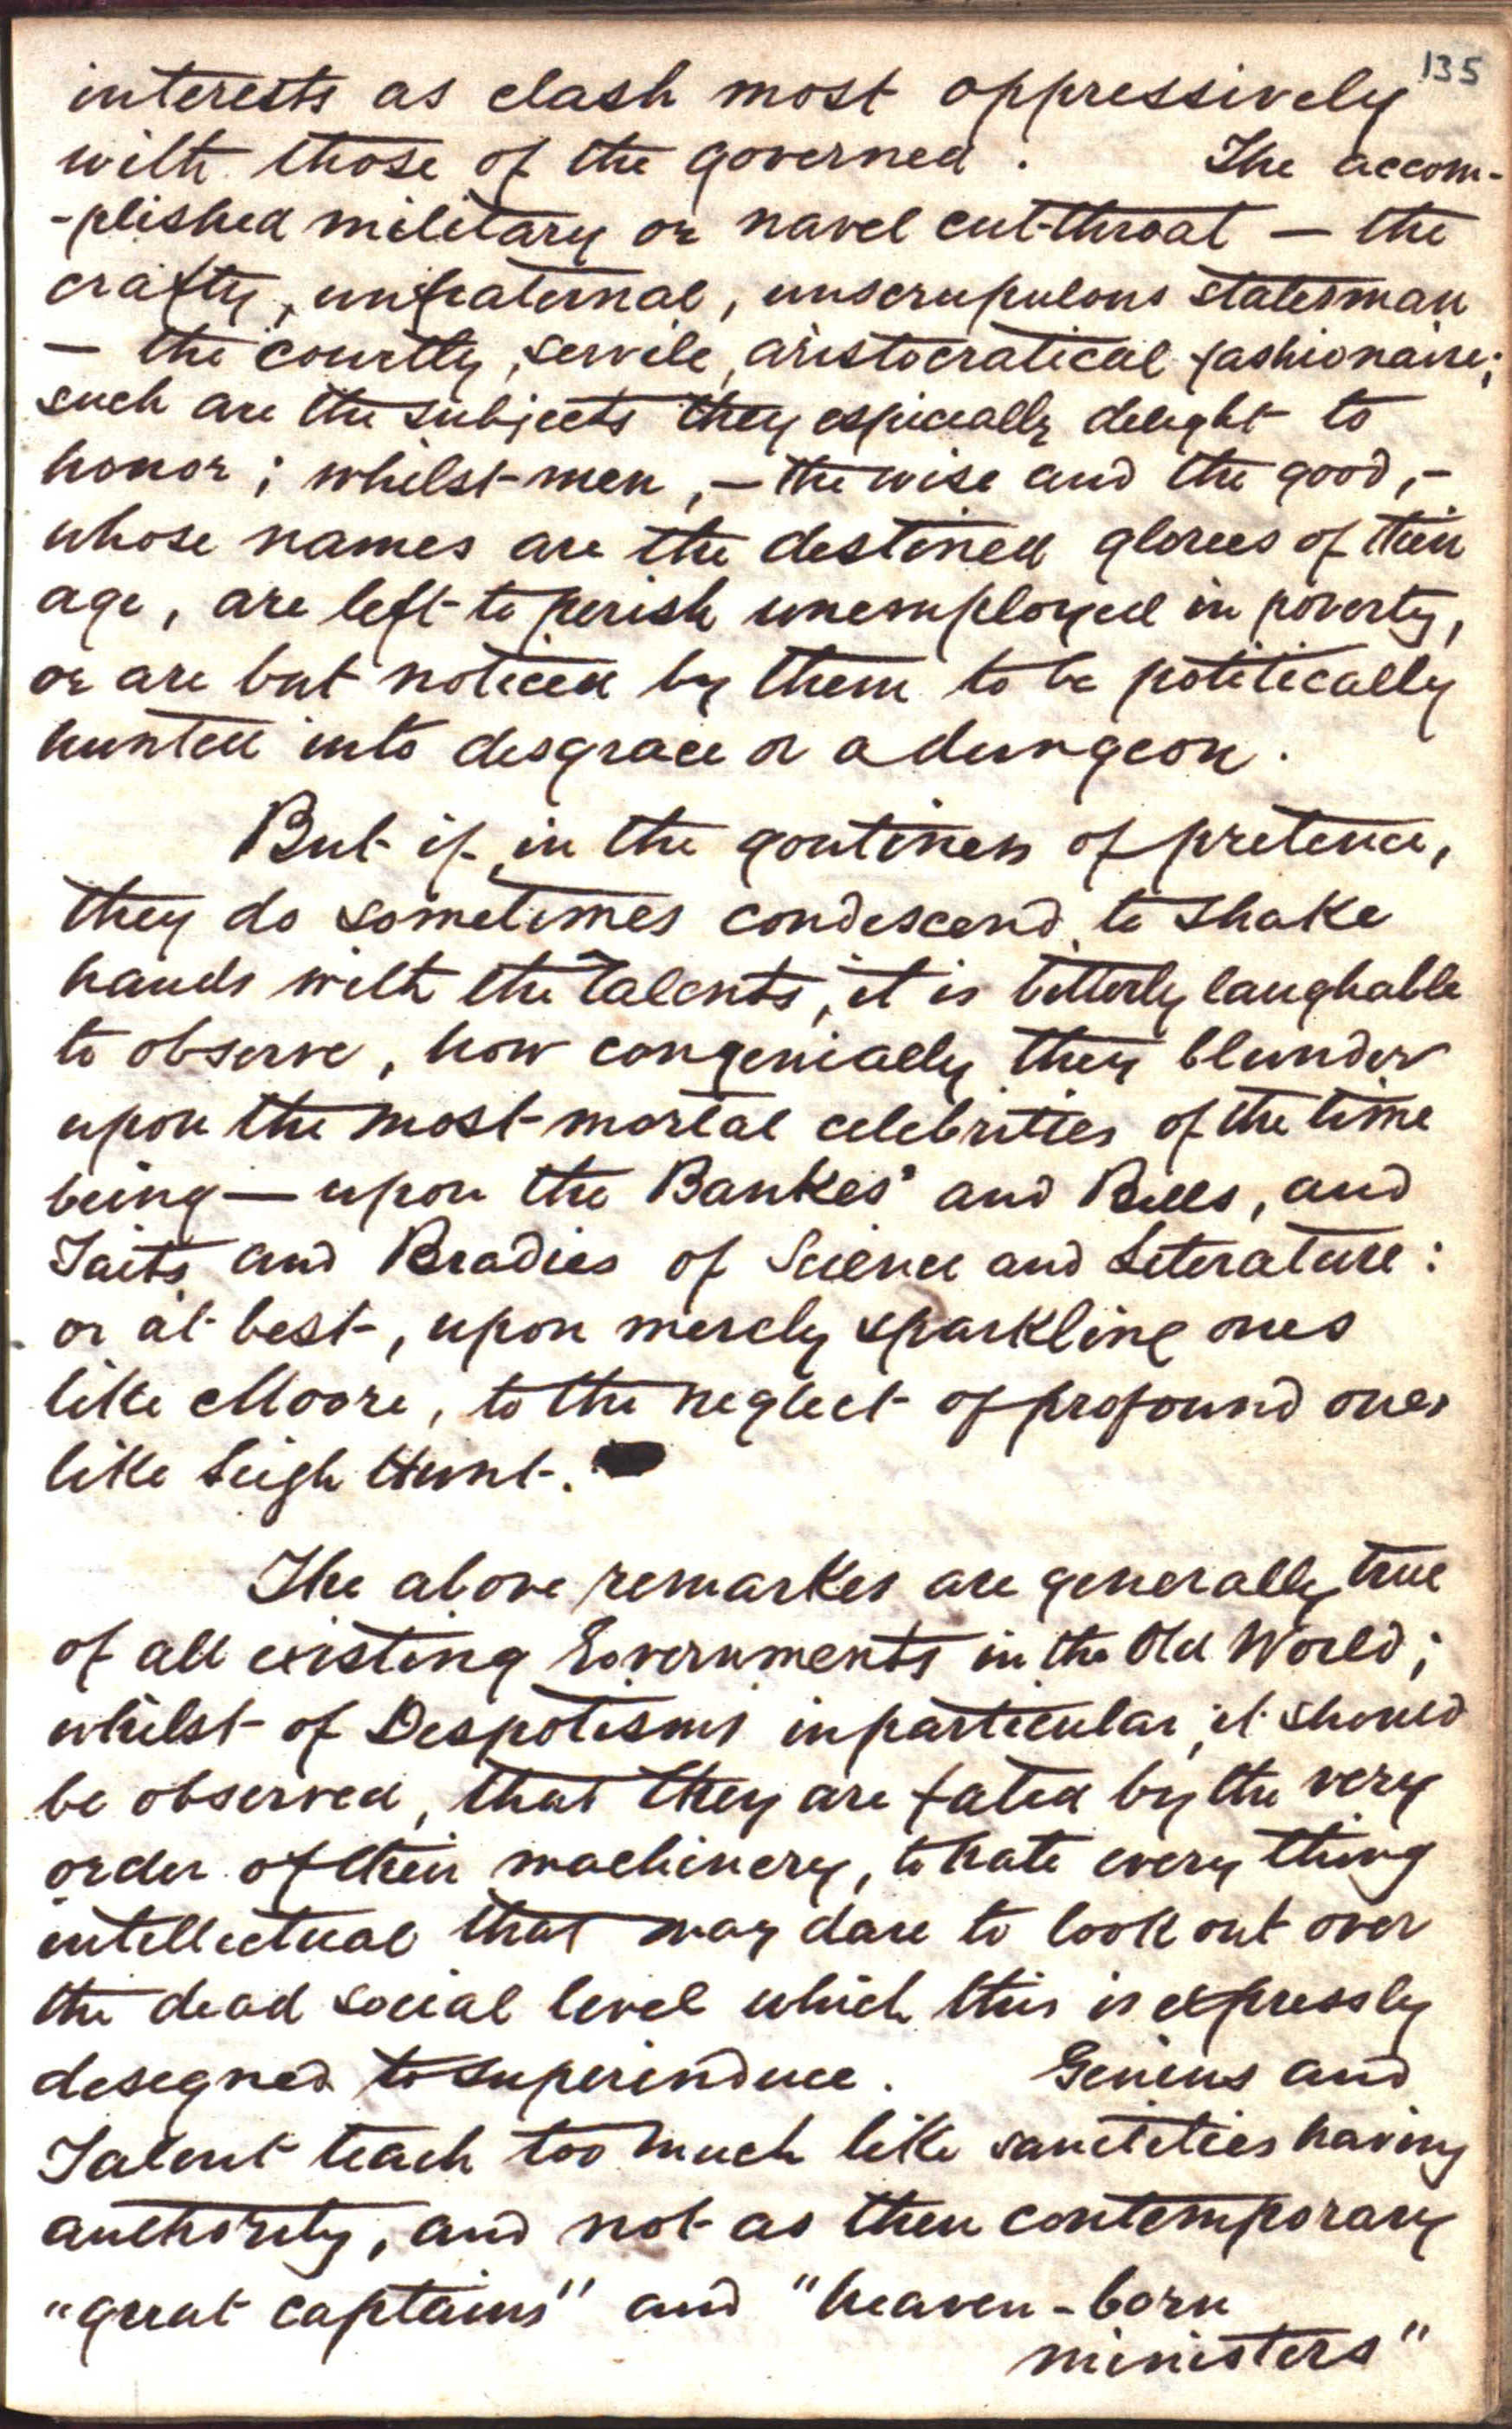 135
interests as clash most oppressively
with those of the governed. The accom-
-plished military or navel cut-throat — the
crafty, unfraternal, unscrupulous statesman
— the courtly, servile, aristocratical fashionaire;
such are the subjects they especially delight to
honor; whilst men, — the wise and the good, —
whose names are the destined glories of their
age, are left to perish unemployed in poverty,
or are but noticed by them to be politically
hunted into disgrace or a dungeon.
But if, in the goutiness of pretence,
they do sometimes condescend to shake
hands with the Talents, it is bitterly laughable
to observe, how congenially they blunder
upon the most mortal celebrities of the time
being — upon the Bankes' and Bells, and
Taits and Bradies of Science and Literature:
or at best, upon merely sparkling ones
like Moore, to the neglect of profound ones
like Leigh Hunt.
The above remarkes are generally true
of all existing Governments in the Old World;
whilst of Despotisms in particular, it should
be observed, that they are fated by the very
order of their machinery, to hate every thing
intellectual that may dare to look out over
the dead social level which this is expressly
designed to superinduce. Genius and
Talent teach too much like sanctities having
authority, and not as their contemporary
"great captains" and "heaven-born
ministers"